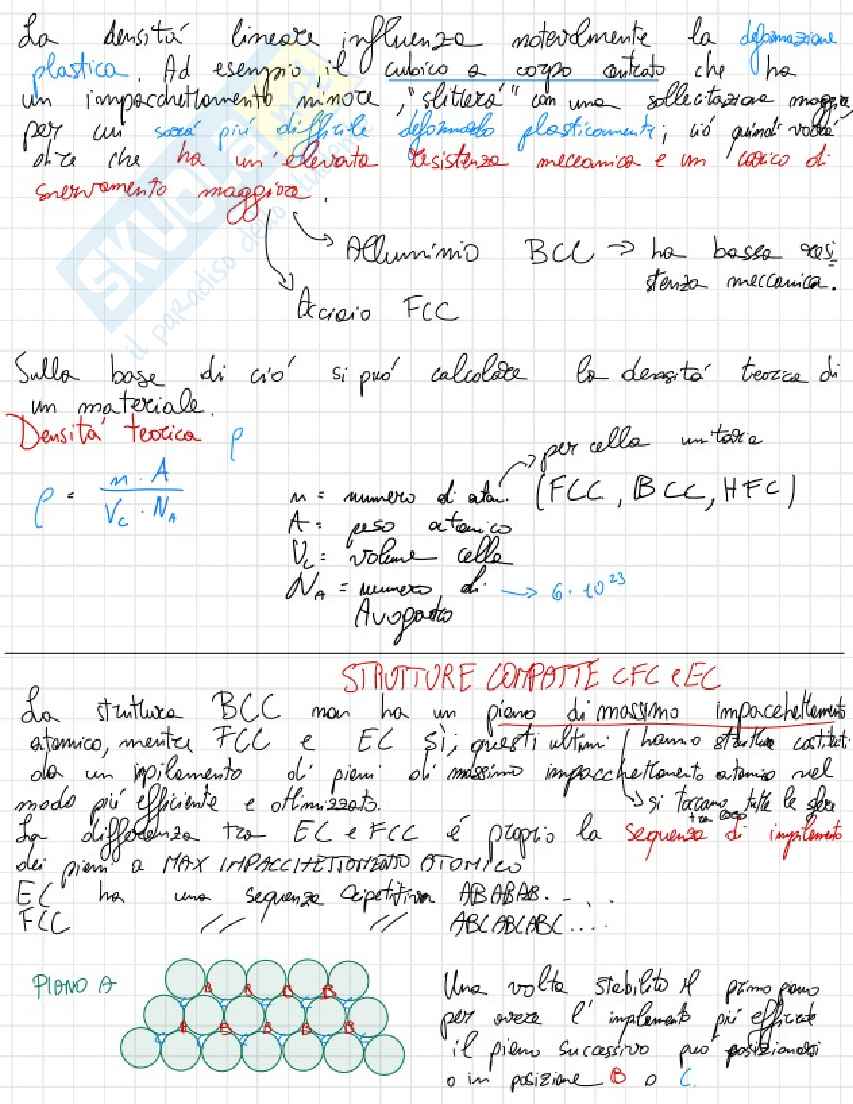 La densità lineare influenza notevolmente la deformazione
plastica. Ad esempio, il cubico a corpo centrato che ha
un impacchettamento minore, "slitterà" con una sollecitazione maggiore,
per cui sarà più difficile deformarlo plasticamente; ciò quindi vorrà
dire che ha un'elevata resistenza meccanica e un carico di
snervamento maggiore.
Alluminio BCC → ha bassa resi
stenza meccanica.
Acciaio FCC
Sulla base di ciò si può calcolare la densità teorica di
un materiale.
Densità teorica ρ
per cella unitaria
ρ = n · A / Vc · NA
n = numero di atomi (FCC, BCC, HFC)
A = peso atomico
Vc = volume cella
NA = numero di → 6 · 10²³
Avogadro
STRUTTURE COMPATTE CFC e EC
La struttura BCC non ha un piano di massimo impacchettamento
atomico, mentre FCC e EC sì; questi ultimi hanno strutture costituiti
da un impilamento di piani di massimo impacchettamento atomico nel
modo più efficiente e ottimizzato. → si toccano tutte le sfere
tra loro
La differenza tra EC e FCC é proprio la sequenza di impilamento
dei piani a MAX IMPACCHETTAMENTO ATOMICO
EC ha una sequenza ripetitiva ABABAB.....
FCC // // ABCABCABC....
PIANO A
B B B B
B B B B B
Una volta stabilito il primo piano
per avere l'implemento più efficiente
il piano successivo può posizionarsi
o in posizione B o C.
SKUOLA
il paradiso dello studente